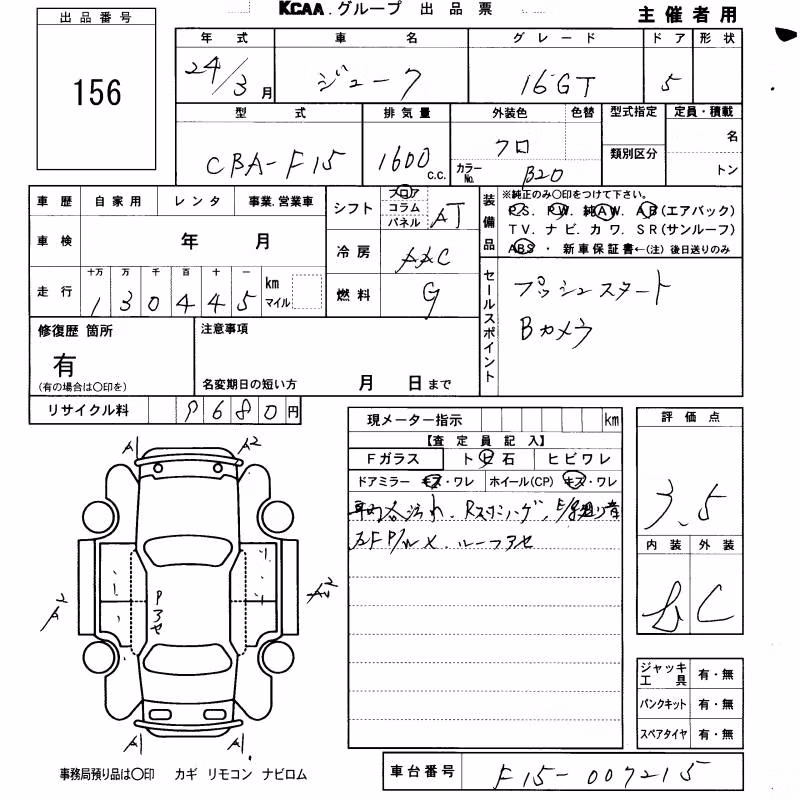 KCAA.グループ 出品票
主催者用
出品番号
156
年式 車名 グレード ドア 形状
24/3月 ジューク 16GT 5
型式 排気量 外装色 色替 型式指定 定員・積載
CBA-F15 1600 c.c. クロ 類別区分 名
カラーNo. B20 トン
車歴 自家用 レンタ 事業.営業車
シフト フロア コラム パネル AT
装備品 ※純正のみ〇印をつけて下さい。
P.S. P.W. 純A.W. A.B(エアバック)
T.V. ナビ. カワ. S.R(サンルーフ)
ABS ・ 新車保証書←(注) 後日送りのみ
車検 年 月
冷房 AAC
走行 十万 万 千 百 十 一
1 3 0 4 4 5 km マイル
燃料 G
セールスポイント プッシュスタート
Bカメラ
修復歴 箇所
有
(有の場合は〇印を)
注意事項
名変期日の短い方 月 日まで
リサイクル料 9680円
現メーター指示 km
【査定員記入】
Fガラス トビ石 ヒビワレ
ドアミラー キズ・ワレ ホイール(CP) キズ・ワレ
ルーフアセ
評価点
3.5
内装 外装
C
A A2
A2 Pアセ
A A
ジャッキ工具 有・無
パンクキット 有・無
スペアタイヤ 有・無
事務局預り品は〇印 カギ リモコン ナビロム
車台番号 F15-007215